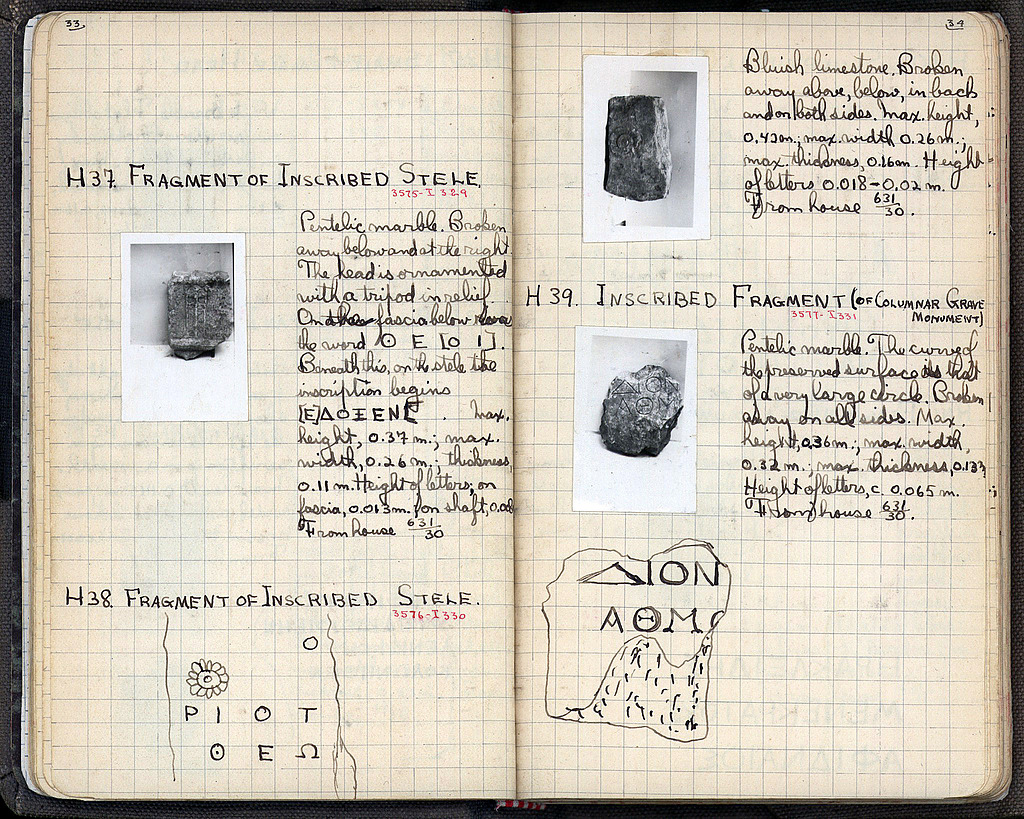 33
H37. FRAGMENT OF INSCRIBED STELE.
3575-I 329
Pentelic marble. Broken
away below and at the right.
The head is ornamented
with a tripod in relief.
On fascia below
the word Θ Ε [Ο Ι].
Beneath this, on the stele the
inscription begins
[Ε]ΔΟΞΕΝΕ. Max.
height, 0.37 m.; max.
width, 0.26 m.; thickness,
0.11 m. Height of letters; on
fascia, 0.013 m. on shaft, 0.008
From house 631/30
H38. FRAGMENT OF INSCRIBED STELE.
3576-I 330
Ο
Ρ Ι Ο Τ
Θ Ε Ω
34
Bluish limestone. Broken
away above, below, in back
and on both sides. Max. height,
0.42 m.; max. width 0.26 m.;
max. thickness, 0.16 m. Height
of letters 0.018-0.02 m.
From house 631/30.
H39. INSCRIBED FRAGMENT (OF COLUMNAR GRAVE
MONUMENT)
3577-I 331
Pentelic marble. The curve of
the preserved surface is that
of a very large circle. Broken
away on all sides. Max.
height, 0.36 m.; max. width,
0.32 m.; max. thickness, 0.13
Height of letters, c. 0.065 m.
From house 631/30.
ΔΙΟΝ
ΑΘΜΟ